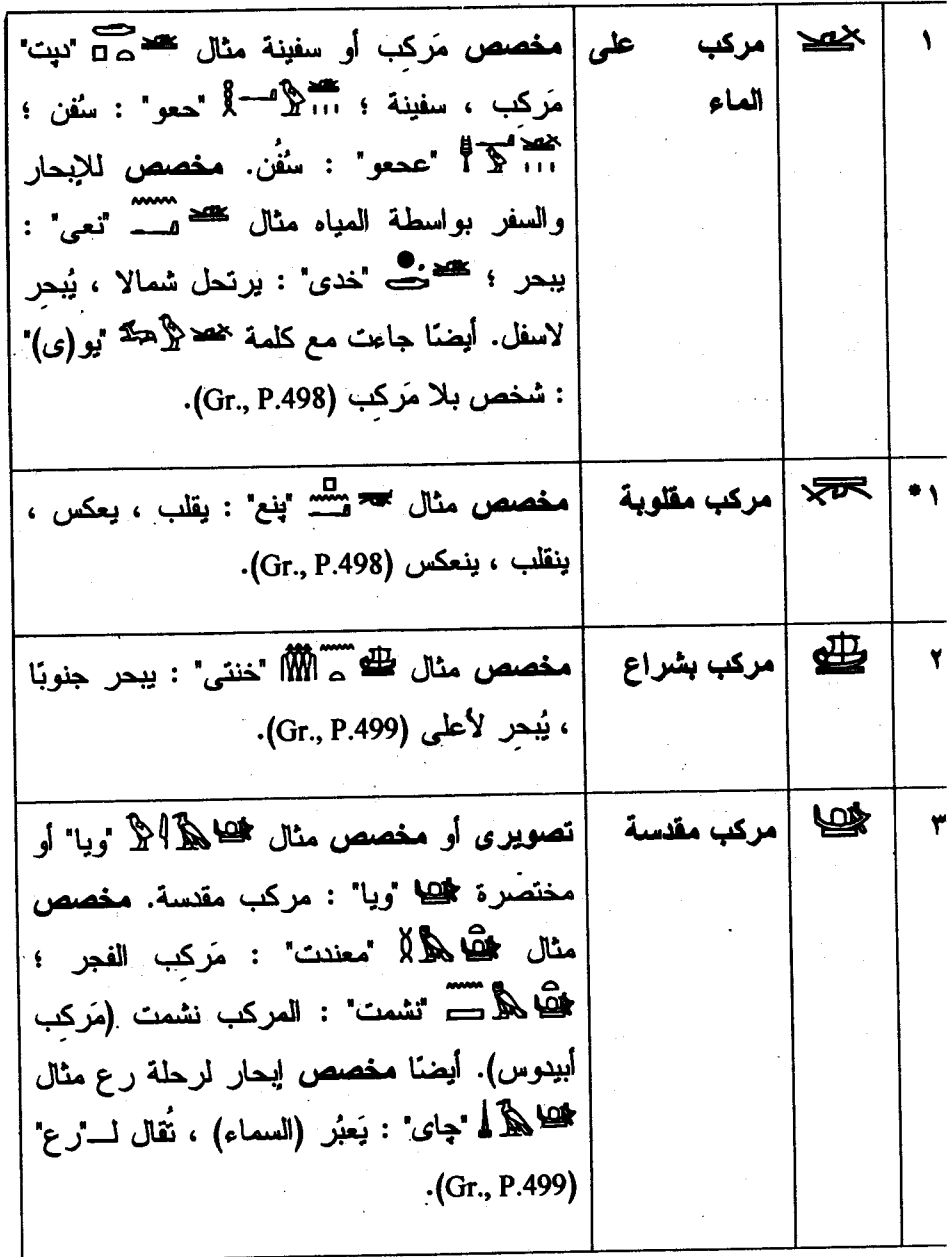 ١ مركب على مخصص مَركِب أو سفينة مثال "دپت"
الماء مَركِب ، سفينة ؛ "حعو" : سُفن ؛
"عحعو" : سُفُن. مخصص للإبحار
والسفر بواسطة المياه مثال "نعى" :
يبحر ؛ "خدى" : يرتحل شمالا ، يُبحِر
لاسفل. أيضًا جاءت مع كلمة "يو(ى)"
: شخص بلا مَركِب (Gr., P.498).
١* مركب مقلوبة مخصص مثال "پنع" : يقلب ، يعكس ،
ينقلب ، ينعكس (Gr., P.498).
٢ مركب بشراع مخصص مثال "خنتى" : يبحر جنوبًا
، يُبحِر لأعلى (Gr., P.499).
٣ مركب مقدسة تصويرى أو مخصص مثال "ويا" أو
مختصرة "ويا" : مركب مقدسة. مخصص
مثال "معندت" : مَركِب الفجر ؛
"نشمت" : المركب نشمت (مَركِب
أبيدوس). أيضًا مخصص إبحار لرحلة رع مثال
"چاى" : يَعبُر (السماء) ، تُقال لــ"رع"
(Gr., P.499).